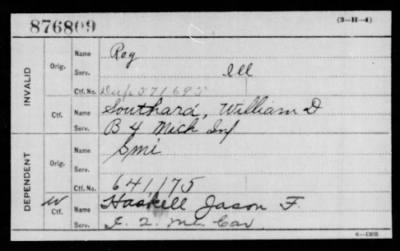 876809 (3-H-4)
INVALID
Orig.
Name Reg
Serv. Ill
Ctf. No. Dup 571695
Ctf.
Name Southard, William D
Serv. B 4 Mich Inf
DEPENDENT
Orig.
Name Smi
Serv.
Ctf. No. 641175
W Ctf.
Name Haskell Jason F.
Serv. I. 2. Me. Cav